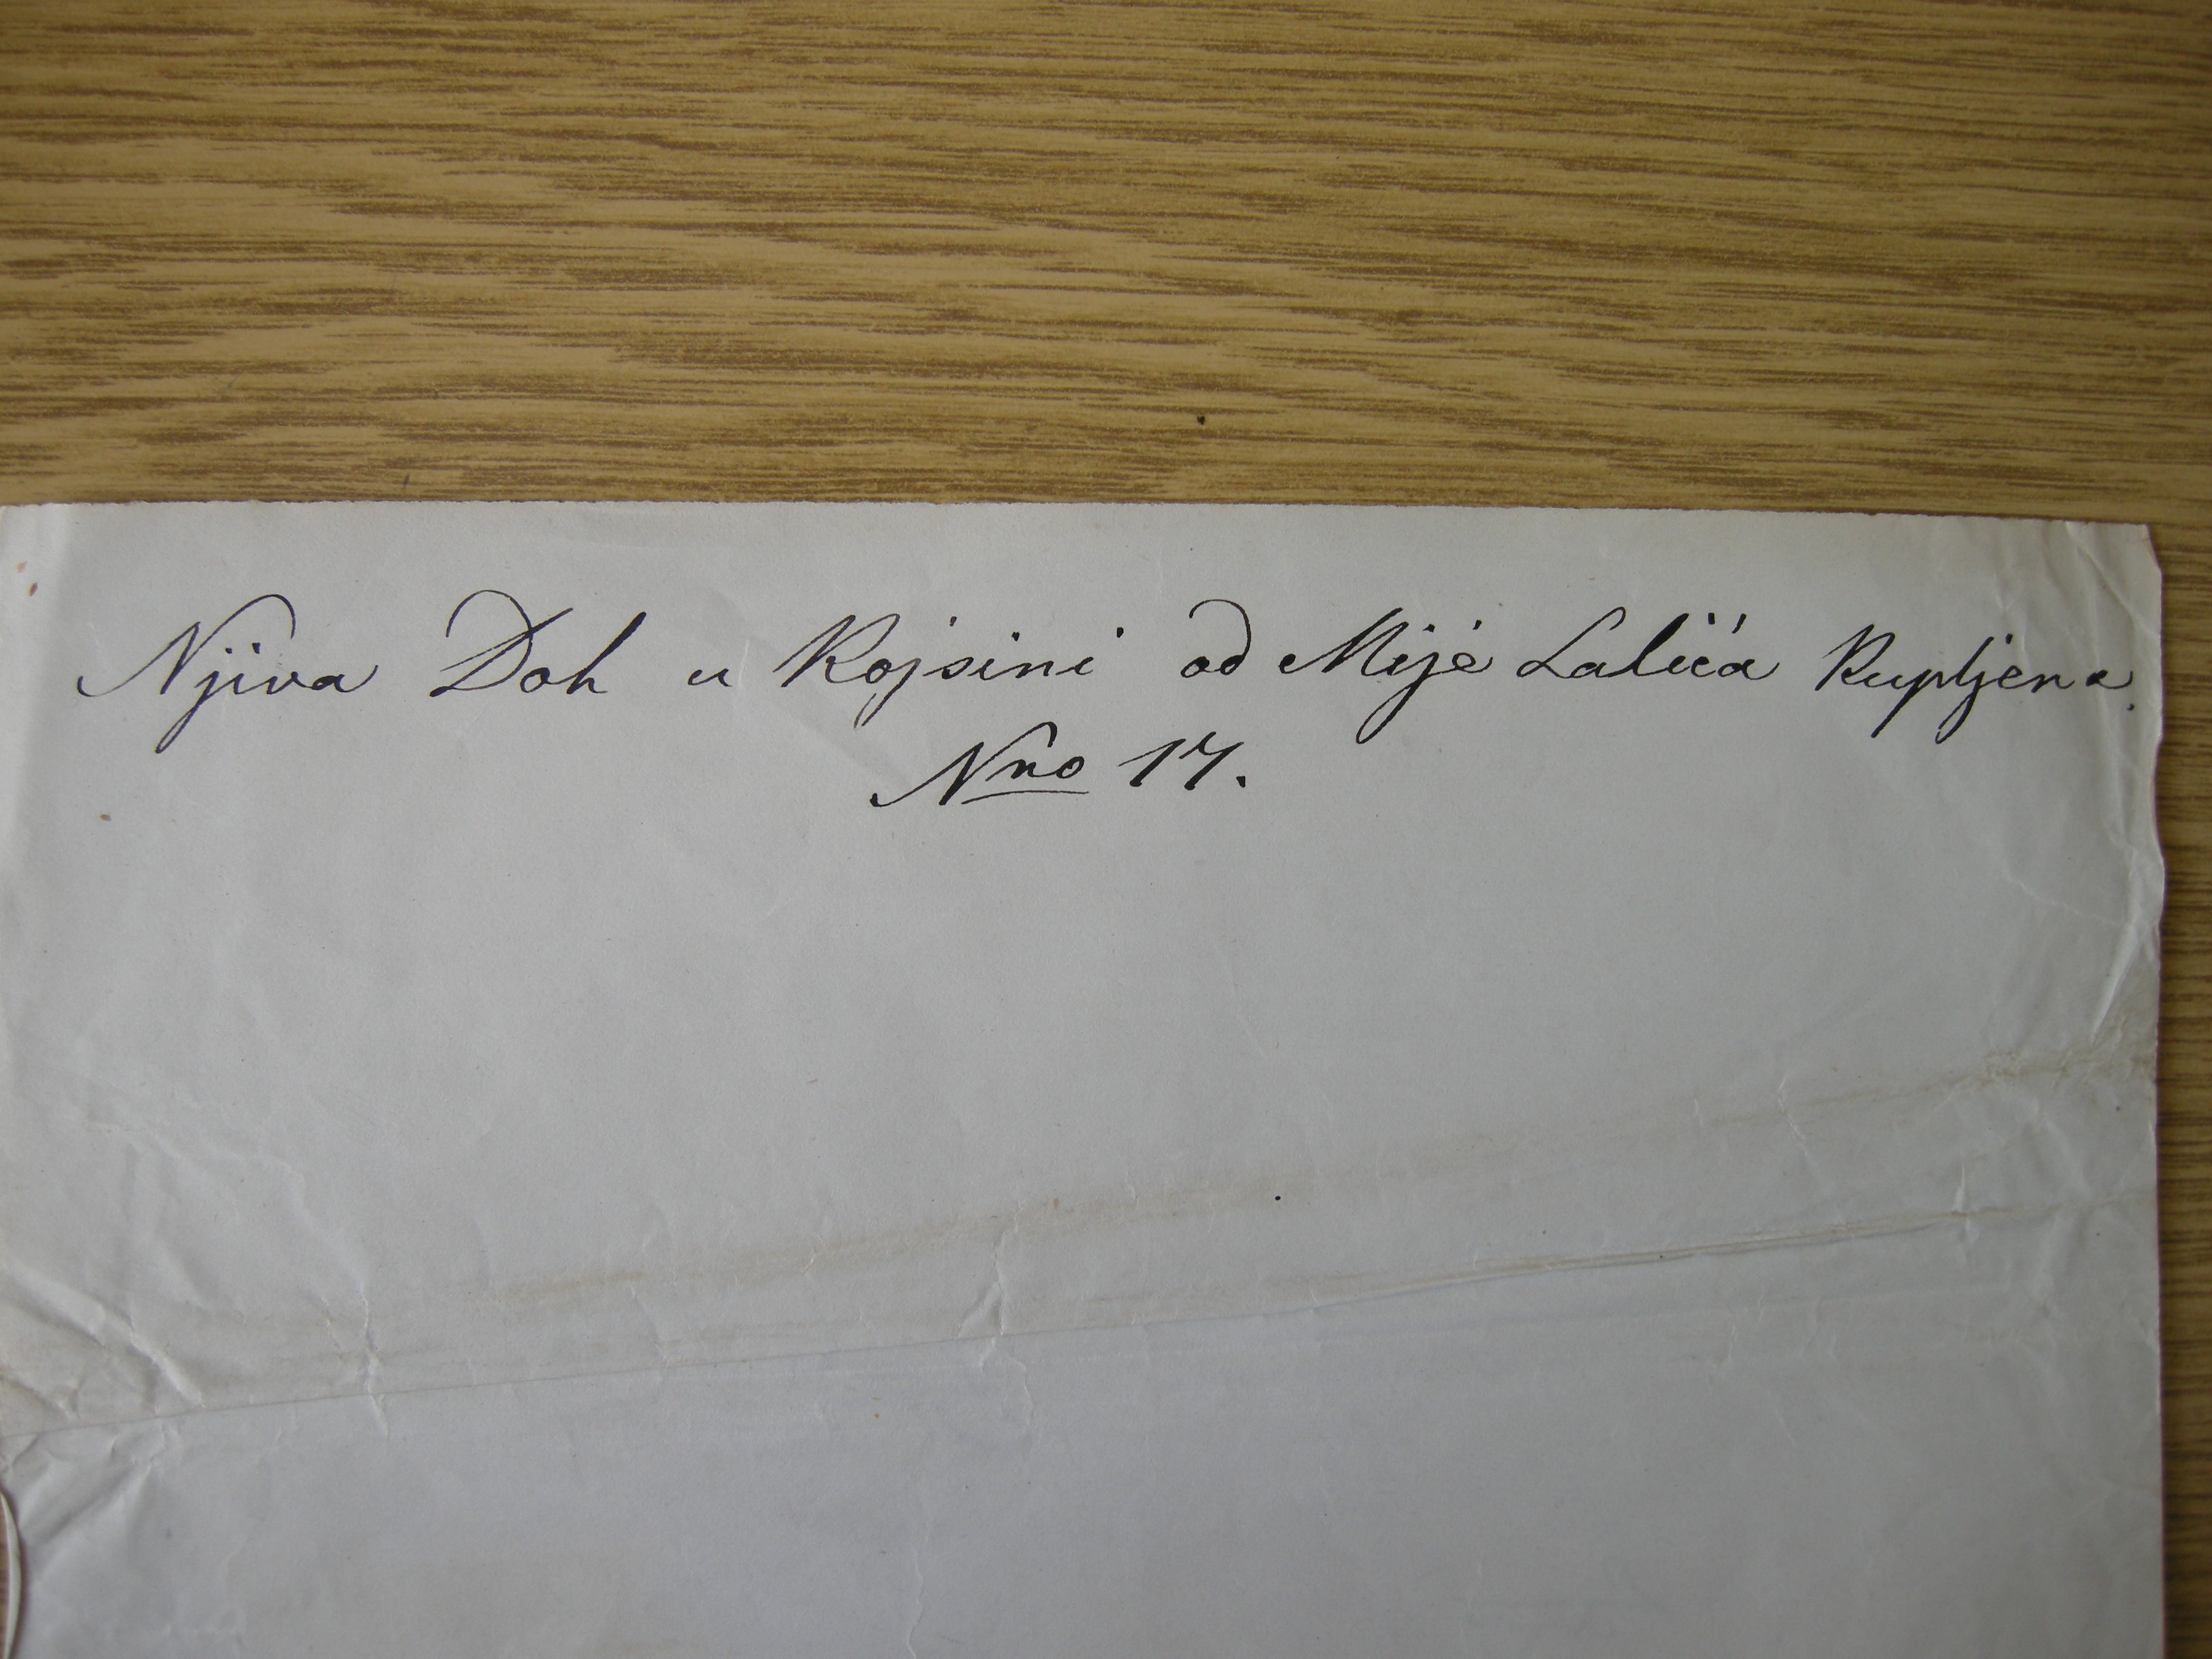 Njiva Doh u Kojsini od Mije Lalića Kupljena.
Nro 17.